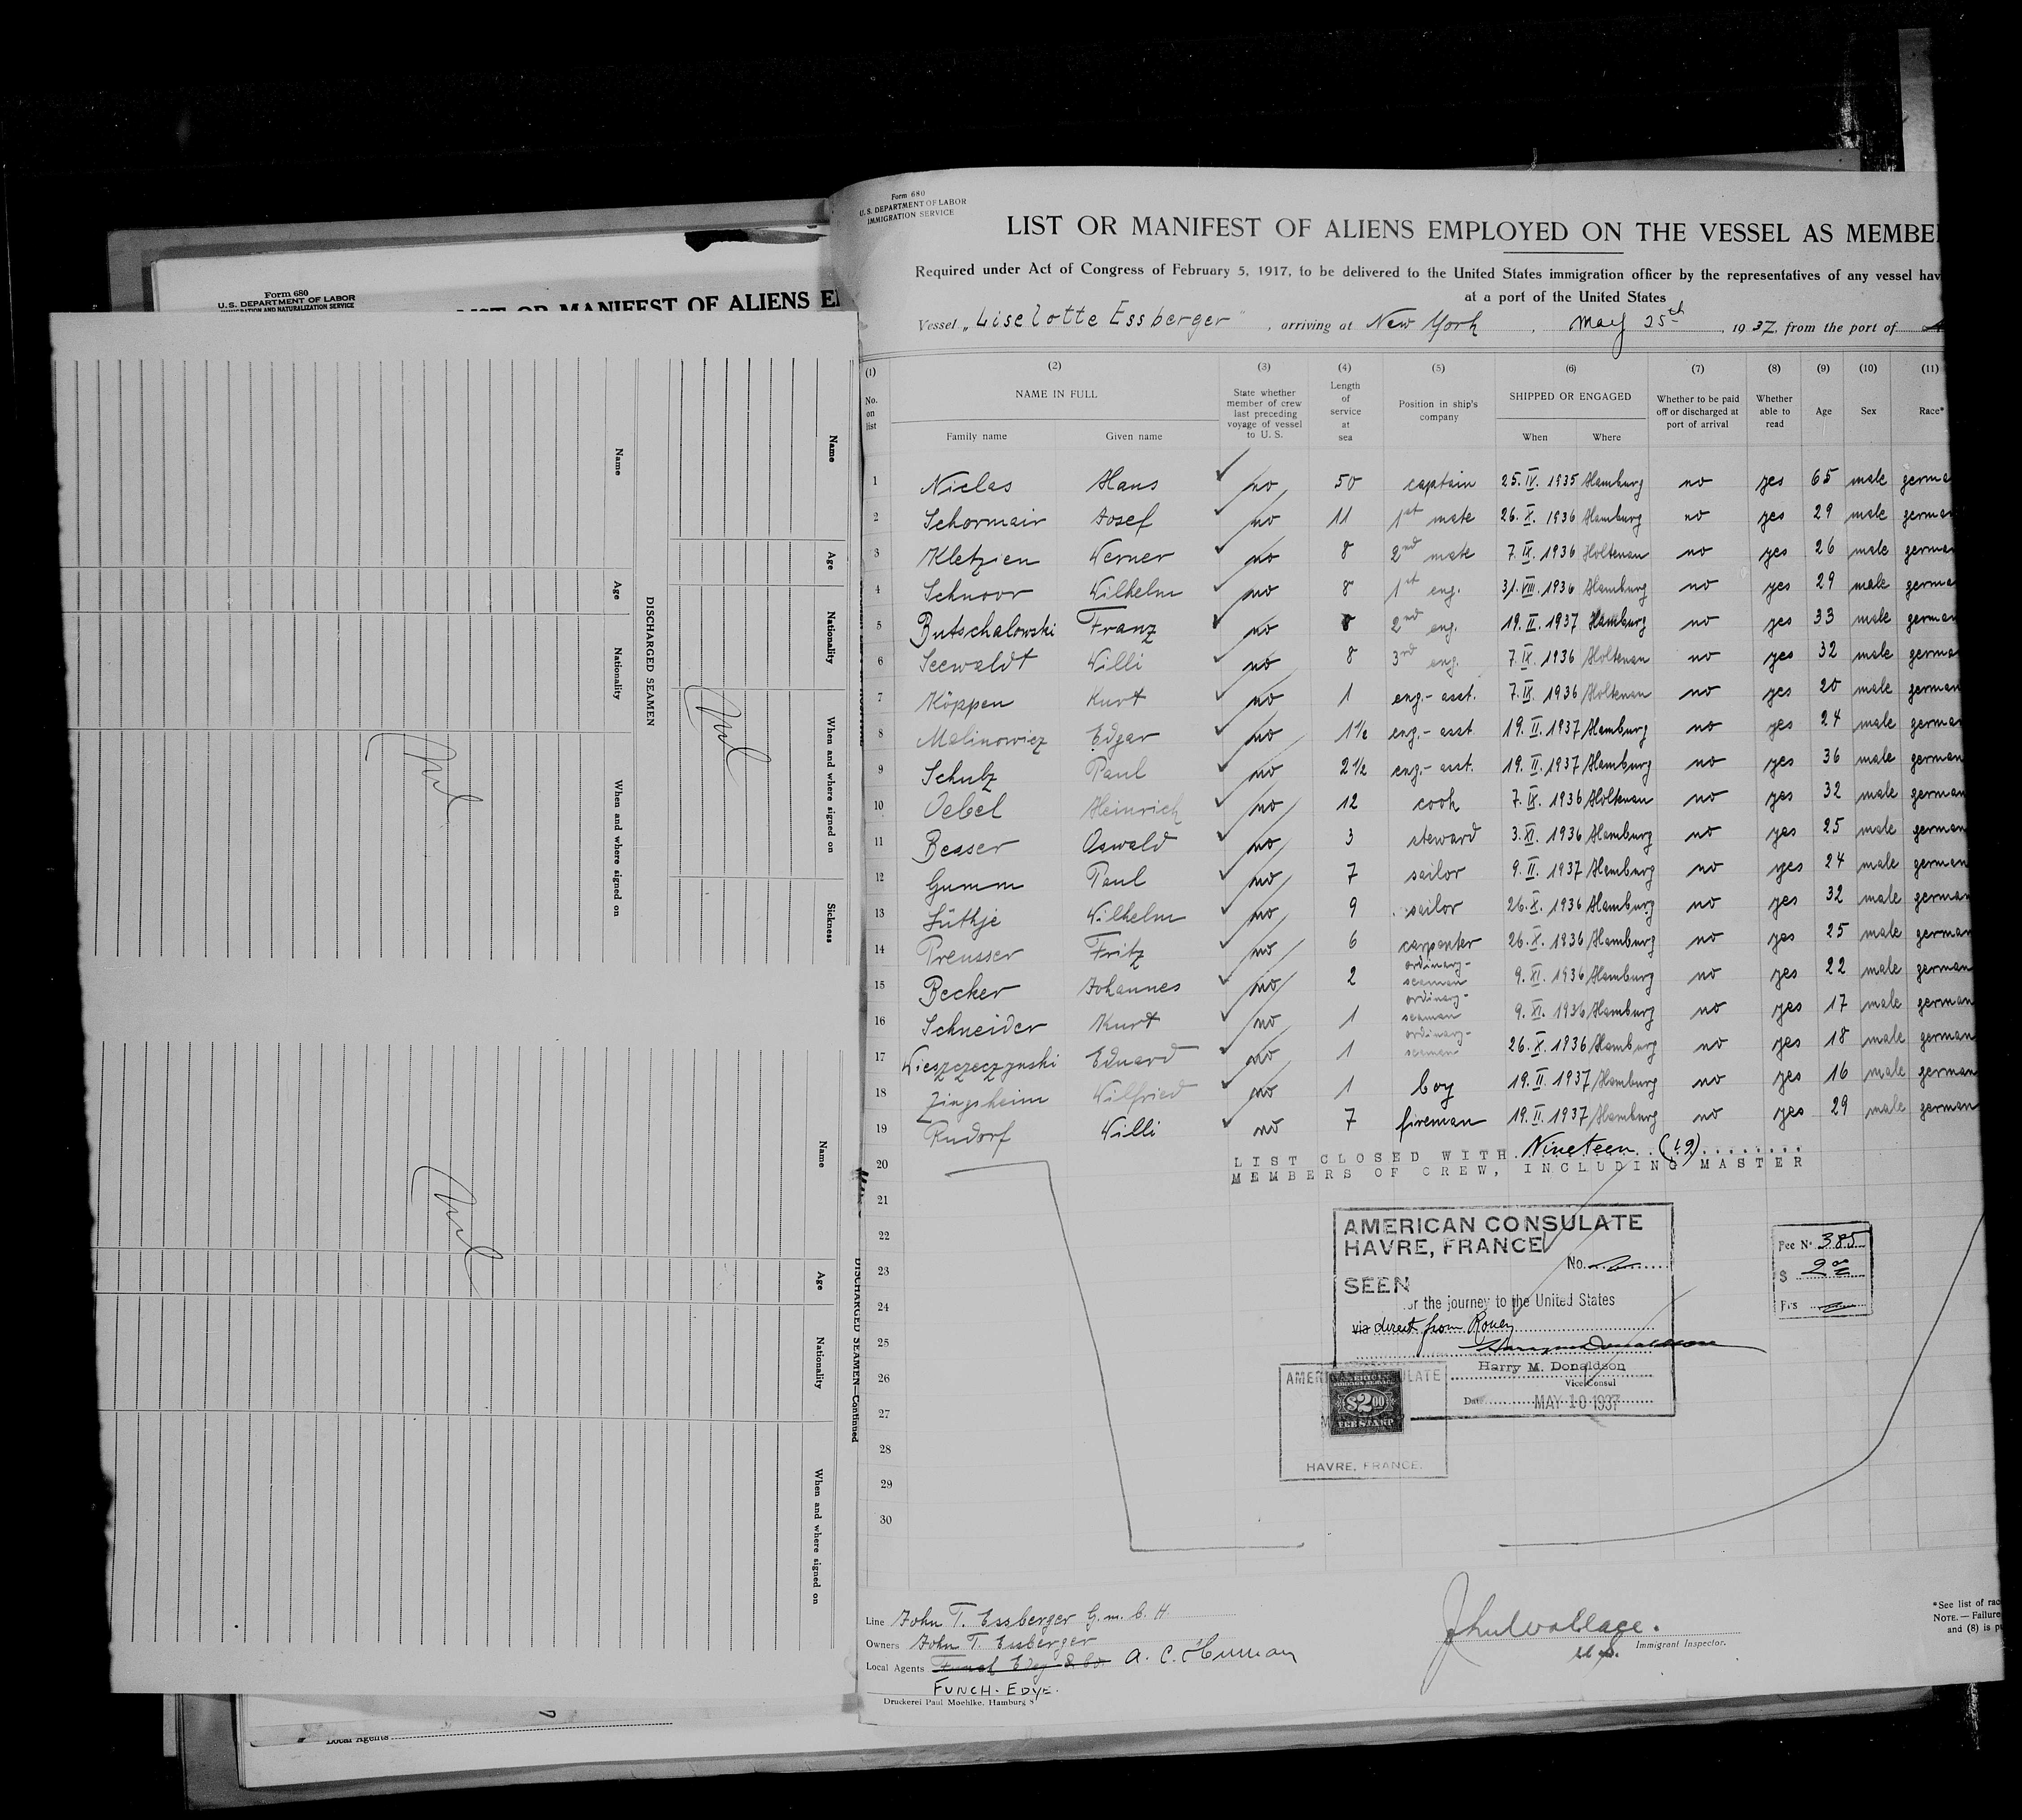 Form 680
U. S. DEPARTMENT OF LABOR
IMMIGRATION AND NATURALIZATION SERVICE
LIST OR MANIFEST OF ALIENS
Name Age Nationality When and where signed on Sickness
DISCHARGED SEAMEN
Name Age Nationality When and where signed on
DISCHARGED SEAMEN—Continued
Name Age Nationality When and where signed on
Local Agents
Form 680
U. S. DEPARTMENT OF LABOR
IMMIGRATION SERVICE
LIST OR MANIFEST OF ALIENS EMPLOYED ON THE VESSEL AS MEMBE
Required under Act of Congress of February 5, 1917, to be delivered to the United States immigration officer by the representatives of any vessel hav
at a port of the United States
Vessel „Liselotte Essberger", arriving at New York, May 25th, 1937, from the port of
(1) (2) (3) (4) (5) (6) (7) (8) (9) (10) (11)
No. on list NAME IN FULL Family name Given name State whether member of crew last preceding voyage of vessel to U. S. Length of service at sea Position in ship's company SHIPPED OR ENGAGED When Where Whether to be paid off or discharged at port of arrival Whether able to read Age Sex Race*
1 Niclas Hans no 50 captain 25. IV. 1935 Hamburg no yes 65 male germa
2 Schormair Josef no 11 1st mate 26. X. 1936 Hamburg no yes 29 male german
3 Kletzien Werner no 8 2nd mate 7. IX. 1936 Holtenau no yes 26 male german
4 Schnoor Wilhelm no 8 1st eng. 31. VIII. 1936 Hamburg no yes 29 male german
5 Butschalowski Franz no 8 2nd eng. 19. II. 1937 Hamburg no yes 33 male german
6 Seewaldt Willi no 8 3rd eng. 7. IX. 1936 Holtenau no yes 32 male german
7 Köppen Kurt no 1 eng.- asst. 7. IX. 1936 Holtenau no yes 20 male german
8 Malinowicz Edgar no 1 1/2 eng.- asst 19. II. 1937 Hamburg no yes 24 male german
9 Schulz Paul no 2 1/2 eng.- asst. 19. II. 1937 Hamburg no yes 36 male german
10 Oebel Heinrich no 12 cook 7. IX. 1936 Holtenau no yes 32 male german
11 Besser Oswald no 3 steward 3. XI. 1936 Hamburg no yes 25 male german
12 Gumm Paul no 7 sailor 9. II. 1937 Hamburg no yes 24 male german
13 Lüthje Wilhelm no 9 sailor 26. X. 1936 Hamburg no yes 32 male german
14 Preusser Fritz no 6 carpenter 26. X. 1936 Hamburg no yes 25 male german
15 Becker Johannes no 2 ordinary-seaman 9. XI. 1936 Hamburg no yes 22 male german
16 Schneider Kurt no 1 ordinary-seaman 9. XI. 1936 Hamburg no yes 17 male german
17 Wieszczeczynski Eduard no 1 ordinary-seaman 26. X. 1936 Hamburg no yes 18 male german
18 Zingsheim Wilfried no 1 boy 19. II. 1937 Hamburg no yes 16 male german
19 Rudorf Willi no 7 fireman 19. II. 1937 Hamburg no yes 29 male german
20
LIST CLOSED WITH Nineteen (19)
MEMBERS OF CREW, INCLUDING MASTER
21
22
23
24
25
26
27
28
29
30
AMERICAN CONSULATE
HAVRE, FRANCE
No.
SEEN
or the journey to the United States
via direct from Rouen
Harry M. Donaldson
Vice Consul
Date MAY 10 1937
Fee No 385
$ 2 00
Frs
AMERICAN CONSULATE
$2 00
FEE STAMP
HAVRE, FRANCE.
Line John T. Essberger G.m.b.H.
Owners John T. Essberger
Local Agents Funch Edye & Co.
FUNCH. EDYE.
Druckerei Paul Moehlke, Hamburg 8
John Wallace.
Immigrant Inspector.
*See list of rac
NOTE.—Failure
and (8) is p